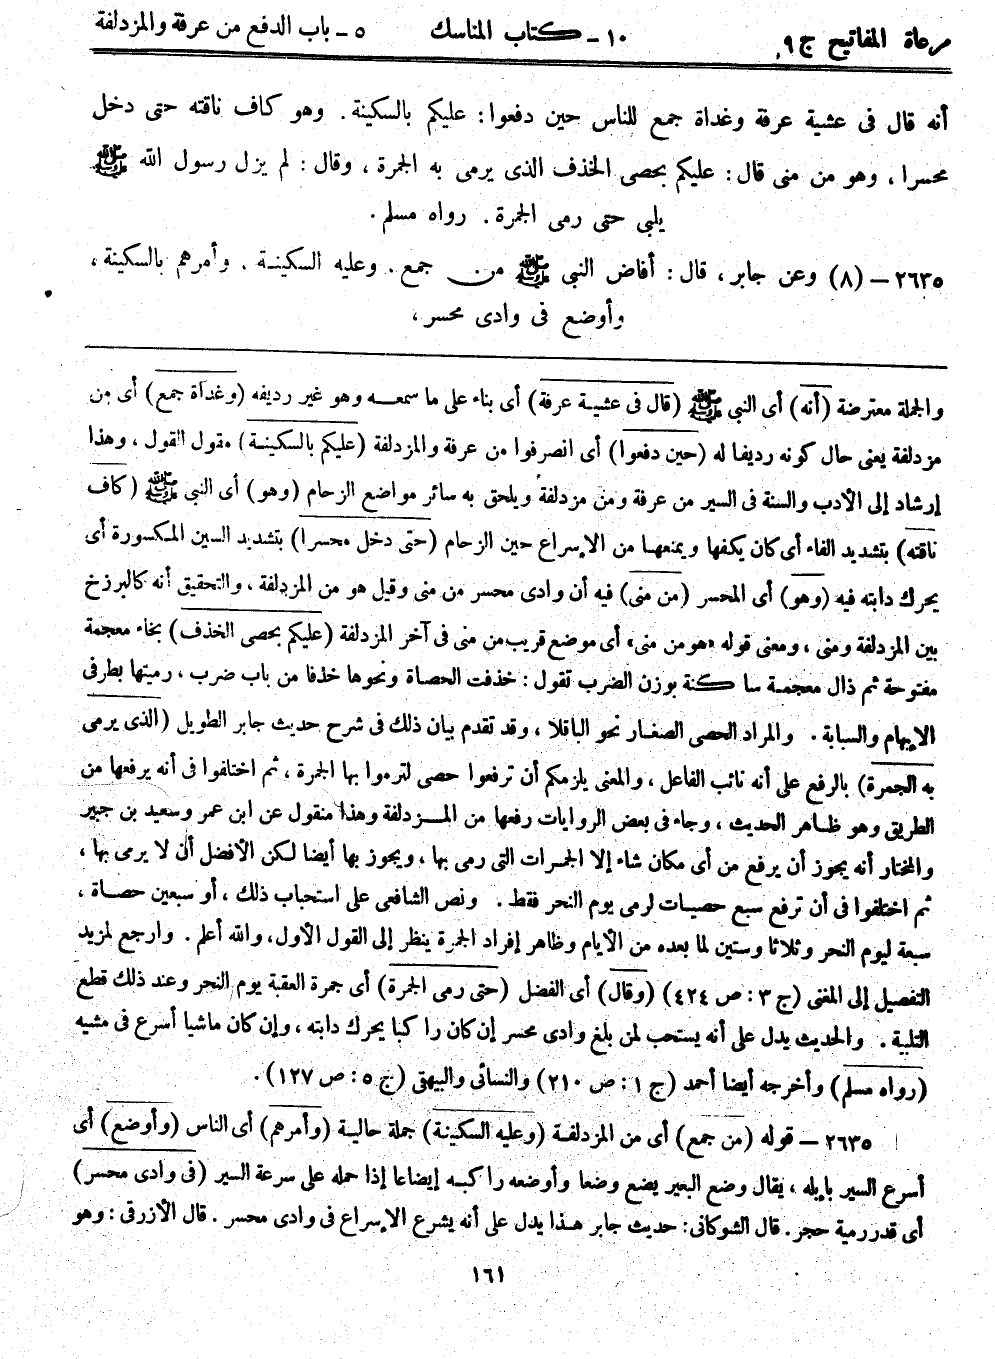 مرعاة المفاتيح ج ٩ ١٠ – كتاب المناسك ٥ – باب الدفع من عرفة والمزدلفة
أنه قال فى عشية عرفة وغداة جمع للناس حين دفعوا: عليكم بالسكينة. وهو كاف ناقته حتى دخل
محسرا، وهو من منى قال: عليكم بحصى الخذف الذى يرمى به الجمرة، وقال: لم يزل رسول الله ﷺ
يلبى حتى رمى الجمرة. رواه مسلم.
٢٦٣٥ – (٨) وعن جابر، قال: أفاض النبى ﷺ من جمع. وعليه السكينة. وأمرهم بالسكينة،
وأوضع فى وادى محسر،
والجملة معترضة (أنه) أى النبى ﷺ (قال فى عشية عرفة) أى بناء على ما سمعه وهو غير رديفه (وغداة جمع) أى من
مزدلفة يعنى حال كونه رديفا له (حين دفعوا) أى انصرفوا من عرفة والمزدلفة (عليكم بالسكينة) مقول القول، وهذا
إرشاد إلى الأدب والسنة فى السير من عرفة ومن مزدلفة ويلحق به سائر مواضع الزحام (وهو) أى النبى ﷺ (كاف
ناقته) بتشديد الفاء أى كان يكفها ويمنعها من الإسراع حين الزحام (حتى دخل محسرا) بتشديد السين المكسورة أى
يحرك دابته فيه (وهو) أى المحسر (من منى) فيه أن وادى محسر من منى وقيل هو من المزدلفة، والتحقيق أنه كالبرزخ
بين المزدلفة ومنى، ومعنى قوله «هو من منى» أى موضع قريب من منى فى آخر المزدلفة (عليكم بحصى الخذف) بخاء معجمة
مفتوحة ثم ذال معجمة ساكنة بوزن الضرب تقول: خذفت الحصاة ونحوها خذفا من باب ضرب، رميتها بطرفى
الإبهام والسبابة. والمراد الحصى الصغار نحو الباقلا، وقد تقدم بيان ذلك فى شرح حديث جابر الطويل (الذى يرمى
به الجمرة) بالرفع على أنه نائب الفاعل، والمعنى يلزمكم أن ترفعوا حصى لترموا بها الجمرة، ثم اختلفوا فى أنه يرفعها من
الطريق وهو ظاهر الحديث، وجاء فى بعض الروايات رفعها من المزدلفة وهذا منقول عن ابن عمر وسعيد بن جبير
والمختار أنه يجوز أن يرفع من أى مكان شاء إلا الجمرات التى رمى بها، ويجوز بها أيضا لكن الأفضل أن لا يرمى بها،
ثم اختلفوا فى أن ترفع سبع حصيات لرمى يوم النحر فقط. ونص الشافعى على استحباب ذلك، أو سبعين حصاة،
سبعة ليوم النحر وثلاثا وستين لما بعده من الأيام وظاهر إفراد الجمرة ينظر إلى القول الأول، والله أعلم. وارجع لمزيد
التفصيل إلى المغنى (ج ٣: ص ٤٢٤) (وقال) أى الفضل (حتى رمى الجمرة) أى جمرة العقبة يوم النحر وعند ذلك قطع
التلبية. والحديث يدل على أنه يستحب لمن بلغ وادى محسر إن كان راكبا يحرك دابته، وإن كان ماشيا أسرع فى مشيه
(رواه مسلم) وأخرجه أيضا أحمد (ج ١: ص ٢١٠) والنسائى والبيهقى (ج ٥: ص ١٢٧).
٢٦٣٥ – قوله (من جمع) أى من المزدلفة (وعليه السكينة) جملة حالية (وأمرهم) أى الناس (وأوضع) أى
أسرع السير بإبله، يقال وضع البعير يضع وضعا وأوضعه راكبه إيضاعا إذا حمله على سرعة السير (فى وادى محسر)
أى قدر رمية حجر. قال الشوكانى: حديث جابر هذا يدل على أنه يشرع الإسراع فى وادى محسر. قال الأزرقى: وهو
١٦١